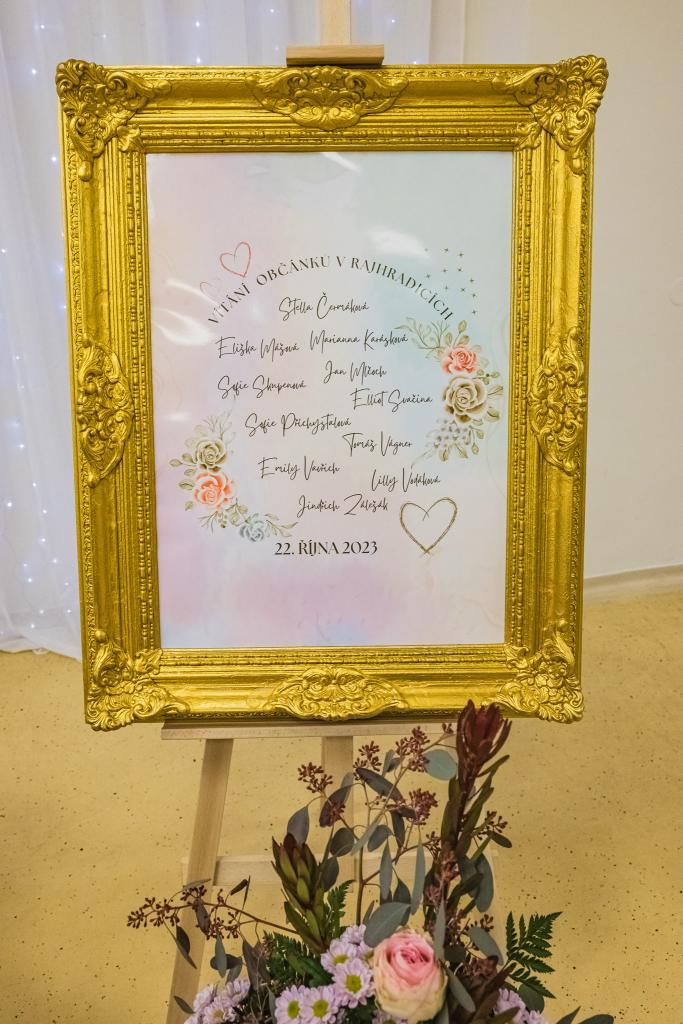 VÍTÁNÍ OBČÁNKŮ V RAJHRADICÍCH
Stella Čermáková
Eliška Mášová
Marianna Karásková
Jan Mlžoch
Sofie Skupenová
Elliot Svačina
Sofie Přichystalová
Tomáš Vágner
Emily Vavřich
Lilly Vodáková
Jindřich Zálešák
22. ŘÍJNA 2023